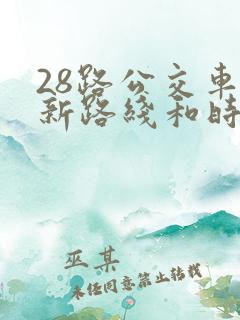 28路公交车
新路线和时
巫某
未经同意禁止转载